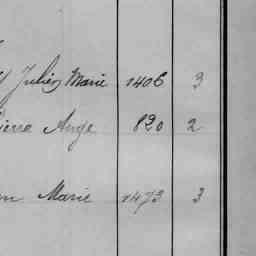 Julien Marie 1406 3
Pierre Ange 820 2
Marie 1473 3